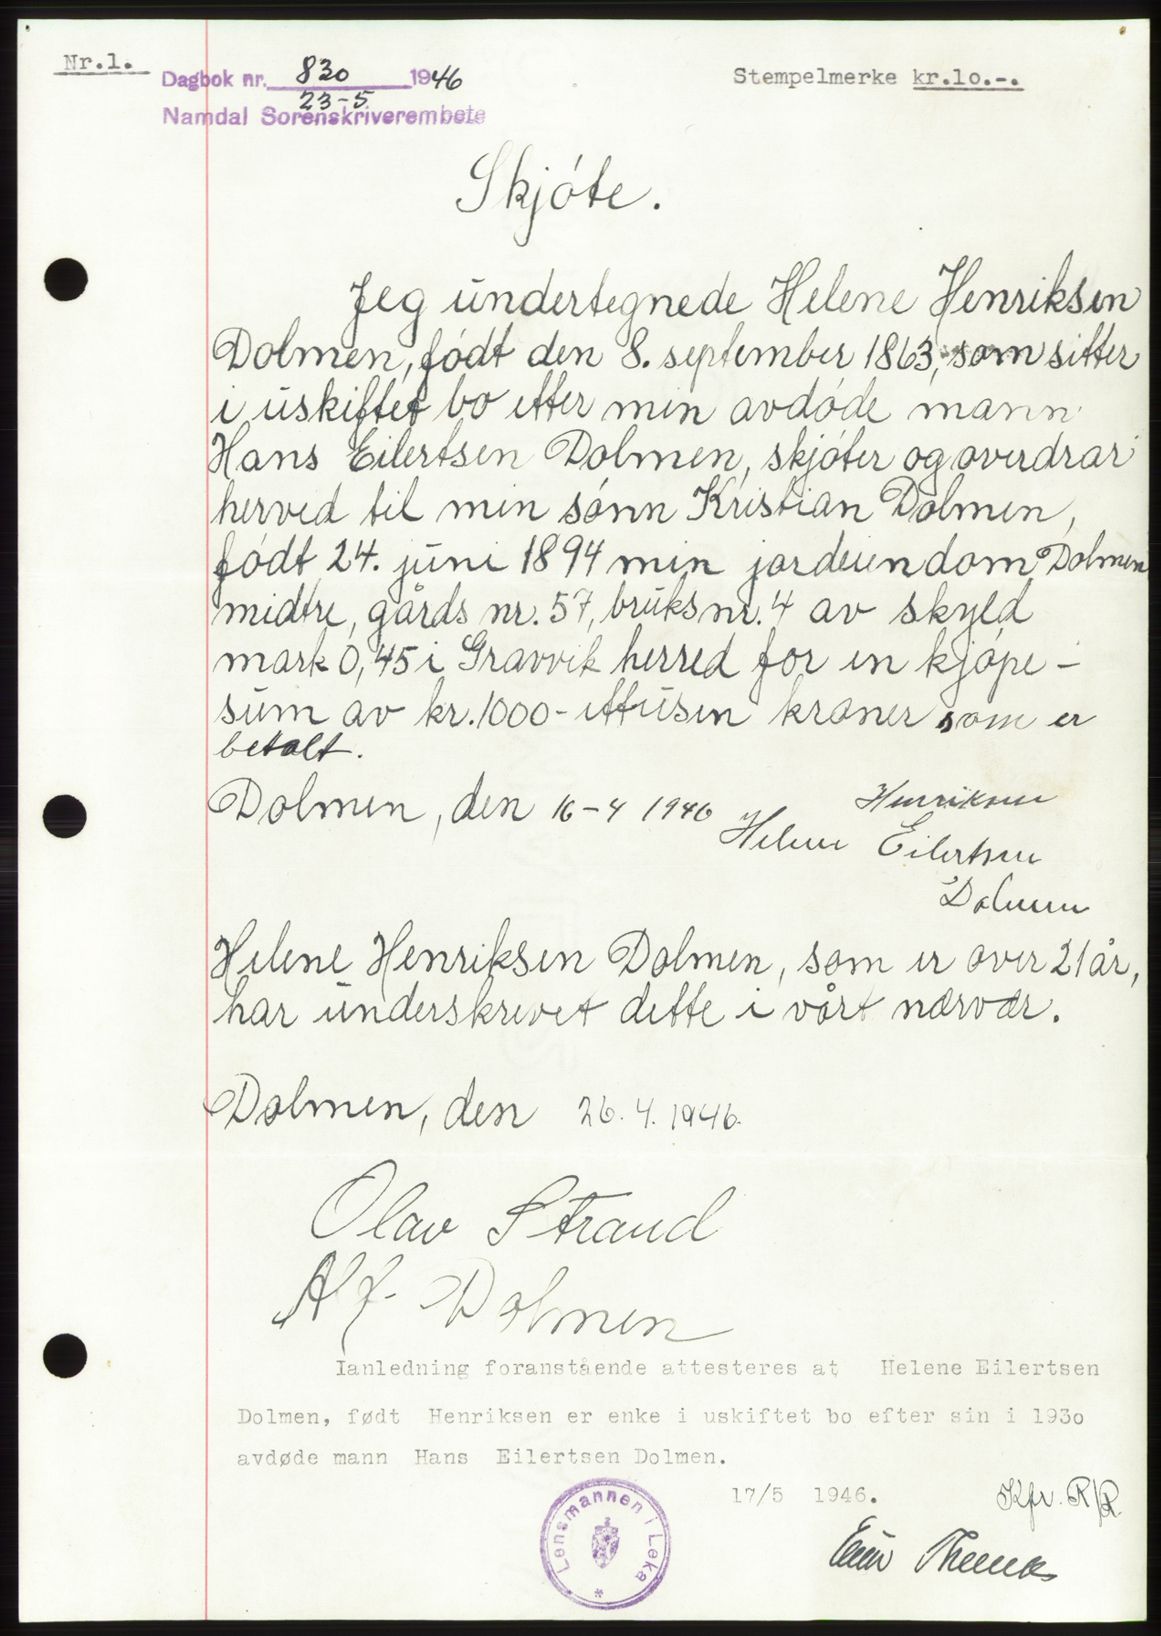 Nr.1.
Dagbok nr. 830 1946
23-5
Namdal Sorenskriverembete
Stempelmerke kr.10.-.
Skjóte.
Jeg undertegnede Helene Henriksen
Dolmen, fódt den 8. september 1863, som sitter
i uskiftet bo etter min avdóde mann
Hans Eilertsen Dolmen, skjóter og overdrar
herved til min sónn Kristian Dolmen,
fódt 24. juni 1894 min jordeiendom Dolmen
midtre, gårds nr. 57, bruks nr. 4 av skyld
mark 0,45 i Gravvik herred for en kjópe-
sum av kr. 1000- ettusen kroner som er
betalt.
Dolmen, den 16-4 1946
Henriksen
Helene Eilertsen
Dolmen
Helene Henriksen Dolmen, som er over 21 år,
har underskrevet dette i vårt nærvær.
Dolmen, den 26.4.1946.
Olav Strand
Alf Dolmen
Ianledning foranstående attesteres at Helene Eilertsen
Dolmen, født Henriksen er enke i uskiftet bo efter sin i 1930
avdøde mann Hans Eilertsen Dolmen.
17/5 1946.
Kfr. R/R
Lensmannen i Leka *